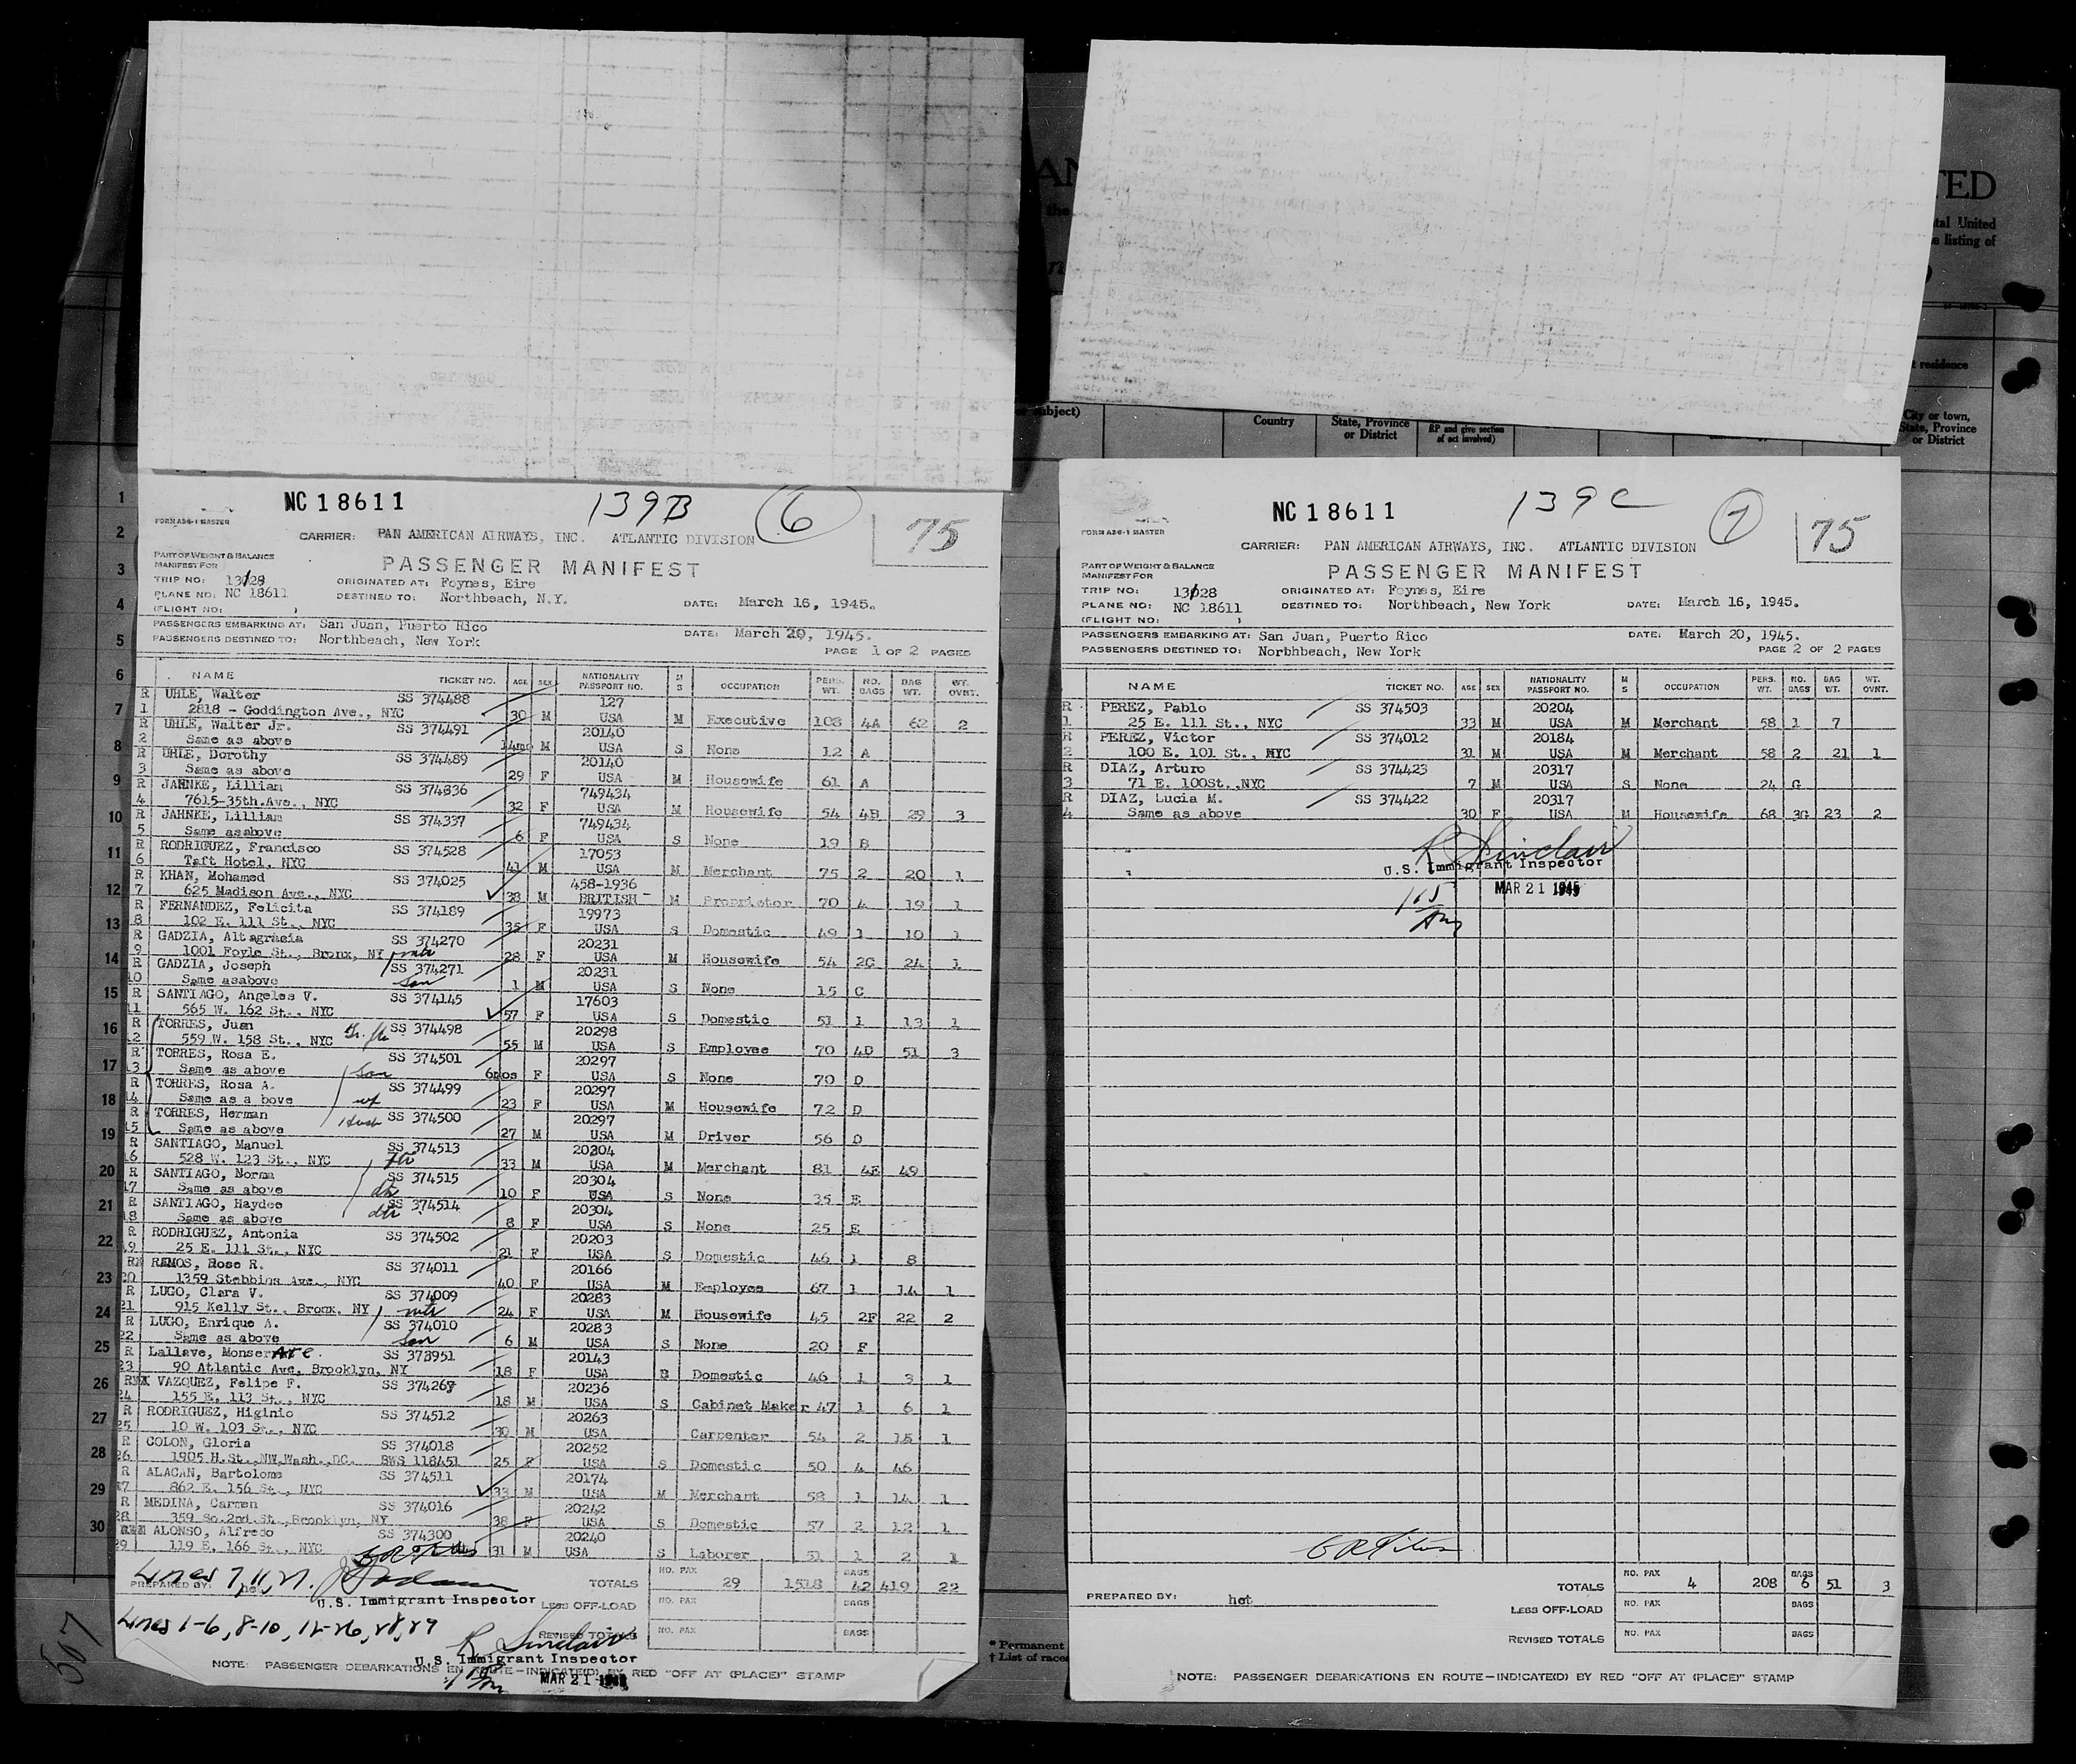 AN
TED
the
tal United
e listing of
residence
subject)
Country
State, Province
or District
RP and give section
of act involved)
City or town,
State, Province
or District
1
2
3
4
5
6
7
8
9
10
11
12
13
14
15
16
17
18
19
20
21
22
23
24
25
26
27
28
29
30
NC 18611
139B
6
75
FORM A86-1 MASTER
CARRIER: PAN AMERICAN AIRWAYS, INC. ATLANTIC DIVISION
PART OF WEIGHT & BALANCE
MANIFEST FOR
PASSENGER MANIFEST
TRIP NO: 13128 ORIGINATED AT: Foynes, Eire
PLANE NO: NC 18611 DESTINED TO: Northbeach, N.Y. DATE: March 16, 1945.
(FLIGHT NO: )
PASSENGERS EMBARKING AT: San Juan, Puerto Rico DATE: March 20, 1945.
PASSENGERS DESTINED TO: Northbeach, New York
PAGE 1 OF 2 PAGES
NAME TICKET NO. AGE SEX NATIONALITY PASSPORT NO. M S OCCUPATION PERS. WT. NO. BAGS BAG WT. WT. OVNT.
R UHLE, Walter SS 374488 127
1 2818 - Goddington Ave., NYC 30 M USA M Executive 108 4A 62 2
R UHLE, Walter Jr. SS 374491 20140
2 Same as above 14mo M USA S None 12 A
R UHLE, Dorothy SS 374489 20140
3 Same as above 29 F USA M Housewife 61 A
R JAHNKE, Lillian SS 374836 749434
4 7615-35th.Ave., NYC 32 F USA M Housewife 54 4B 29 3
R JAHNKE, Lilliam SS 374337 749434
5 Same asabove 6 F USA S None 19 B
R RODRIGUEZ, Francisco SS 374528 17053
6 Taft Hotel, NYC 41 M USA M Merchant 75 2 20 1
R KHAN, Mohamed SS 374025 458-1936
7 625 Madison Ave., NYC 38 M BRITISH M Proprietor 70 4 19 1
R FERNANDEZ, Felicita SS 374189 19973
8 102 E. 111 St., NYC 35 F USA S Domestic 49 1 10 1
R GADZIA, Altagrasia SS 374270 20231
9 1001 Foyle St., Bronx, NY mtr 28 F USA M Housewife 54 2C 24 1
R GADZIA, Joseph SS 374271 20231
10 Same asabove son 1 M USA S None 15 C
R SANTIAGO, Angeles V. SS 374145 17603
11 565 W. 162 St., NYC 57 F USA S Domestic 51 1 13 1
R TORRES, Juan SS 374498 20298
12 559 W. 158 St., NYC 55 M USA S Employee 70 4D 51 3
R TORRES, Rosa E. SS 374501 20297
13 Same as above son 6mos F USA S None 70 D
R TORRES, Rosa A. SS 374499 20297
14 Same as a bove wf 23 F USA M Housewife 72 D
R TORRES, Herman SS 374500 20297
15 Same as above Husb 27 M USA M Driver 56 D
R SANTIAGO, Manuel SS 374513 20304
16 528 W. 123 St., NYC 33 M USA M Merchant 81 4E 49
R SANTIAGO, Norma SS 374515 20304
17 Same as above 10 F USA S None 35 E
R SANTIAGO, Haydee SS 374514 20304
18 Same as above dtr 8 F USA S None 25 E
R RODRIGUEZ, Antonia SS 374502 20203
19 25 E. 111 St., NYC 21 F USA S Domestic 46 1 8
R RAMOS, Rose R. SS 374011 20166
20 1359 Stebbins Ave., NYC 40 F USA M Employee 67 1 14 1
R LUGO, Clara V. SS 374009 20283
21 915 Kelly St., Bronx, NY mtr 24 F USA M Housewife 45 2F 22 2
R LUGO, Enrique A. SS 374010 20283
22 Same as above son 6 M USA S None 20 F
R Lallave, Monserate SS 373951 20143
23 90 Atlantic Ave, Brooklyn, NY 18 F USA Domestic 46 1 3 1
R VAZQUEZ, Felipe F. SS 374267 20236
24 155 E. 113 St., NYC 18 M USA S Cabinet Maker 47 1 6 1
R RODRIGUEZ, Higinio SS 374512 20263
25 10 W. 103 St., NYC 30 M USA Carpenter 54 2 15 1
R COLON, Gloria SS 374018 20252
26 1905 H.St.,NW,Wash.,DC. BWS 118451 25 F USA S Domestic 50 4 46
R ALACAN, Bartolome SS 374511 20174
27 862 E. 156 St., NYC 33 M USA M Merchant 58 1 14 1
R MEDINA, Carmen SS 374016 20242
28 359 So.2nd.St.,Brooklyn, NY 38 F USA S Domestic 57 2 12 1
ALONSO, Alfredo SS 374300 20240
29 119 E. 166 St., NYC 31 M USA S Laborer 51 1 2 1
Lines 7, 11, 27.
PREPARED BY: het
TOTALS NO. PAX 29 1518 BAGS 42 419 22
U.S. Immigrant Inspector
LESS OFF-LOAD NO. PAX BAGS
Lines 1-6, 8-10, 12-26, 28, 29
R Sinclair
REVISED TOTALS NO. PAX BAGS
U.S. Immigrant Inspector
NOTE: PASSENGER DEBARKATIONS EN ROUTE—INDICATE(D) BY RED "OFF AT (PLACE)" STAMP
MAR 21 1945
507
NC 18611
139C
7
75
FORM A86-1 MASTER
CARRIER: PAN AMERICAN AIRWAYS, INC. ATLANTIC DIVISION
PART OF WEIGHT & BALANCE
MANIFEST FOR
PASSENGER MANIFEST
TRIP NO: 13128 ORIGINATED AT: Foynes, Eire
PLANE NO: NC 18611 DESTINED TO: Northbeach, New York DATE: March 16, 1945.
(FLIGHT NO: )
PASSENGERS EMBARKING AT: San Juan, Puerto Rico DATE: March 20, 1945.
PASSENGERS DESTINED TO: Norbhbeach, New York PAGE 2 OF 2 PAGES
NAME TICKET NO. AGE SEX NATIONALITY PASSPORT NO. M S OCCUPATION PERS. WT. NO. BAGS BAG WT. WT. OVNT.
R PEREZ, Pablo SS 374503 20204
1 25 E. 111 St., NYC 33 M USA M Merchant 58 1 7
R PEREZ, Victor SS 374012 20184
2 100 E. 101 St., NYC 31 M USA M Merchant 58 2 21 1
R DIAZ, Arturo SS 374423 20317
3 71 E. 100St.,NYC 7 M USA S None 24 G
R DIAZ, Lucia M. SS 374422 20317
4 Same as above 30 F USA M Housewife 68 3G 23 2
R Sinclair
U.S. Immigrant Inspector
MAR 21 1945
PREPARED BY: het
TOTALS NO. PAX 4 208 BAGS 6 51 3
LESS OFF-LOAD NO. PAX BAGS
REVISED TOTALS NO. PAX BAGS
NOTE: PASSENGER DEBARKATIONS EN ROUTE—INDICATE(D) BY RED "OFF AT (PLACE)" STAMP
* Permanent
† List of races